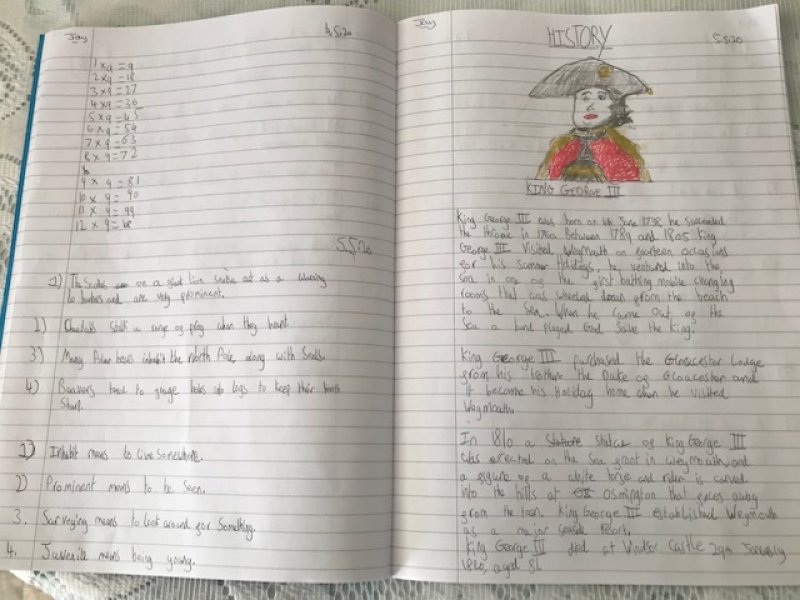 Jay
4.5.20
1 x 9 = 9
2 x 9 = 18
3 x 9 = 27
4 x 9 = 36
5 x 9 = 45
6 x 9 = 54
7 x 9 = 63
8 x 9 = 72
9 x 9 = 81
10 x 9 = 90
11 x 9 = 99
12 x 9 =
5.5.20
1) The Scales on a lion act as a warning
to and are very prominent.
2) a range of prey when they hunt.
3) Many Polar bears inhabit the North Pole along with Seals.
4) tend to gouge holes into logs to keep their teeth
Sharp.
1) Inhabit means to live Somewhere.
2) Prominent means to be Seen.
3. Surveying means to look around for Something.
4. Juvenile means being young.
Jay
HISTORY
5.5.20
KING GEORGE III
King George III was born on 4th June 1738 he Succeeded
the throne in 1760 Between 1789 and 1805 King
George III Visited Weymouth on fourteen occasions
for his Summer Holidays, he ventured into the
Sea in one of the first bathing mobile changing
rooms that was wheeled down from the beach
to the Sea. When he came Out of the
Sea a band played God Save the King.
King George III purchased the Gloucester Lodge
from his the Duke of Gloucester and
it became his holiday home when he visited
Weymouth.
In 1810 a Statue of King George III
was erected on the Sea front in Weymouth and
a figure of a white horse and rider is carved
into the hills at Osmington that faces away
from the town. King George III established Weymouth
as a major Seaside resort.
King George III died at Windsor Castle 29th January
1820, aged 81